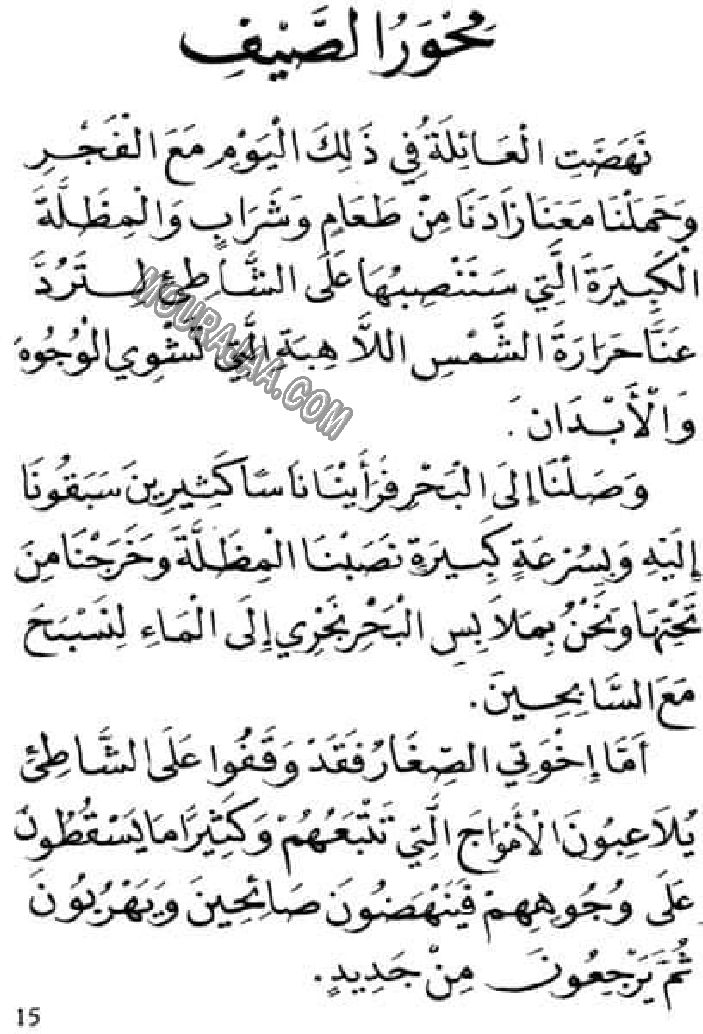 مُحْوَرُ الصَّيْفِ
نَهَضَتِ الْعَائِلَةُ فِي ذَلِكَ الْيَوْمِ مَعَ الْفَجْرِ
وَحَمَلْنَا مَعَنَا زَادَنَا مِنْ طَعَامٍ وَشَرَابٍ وَالْمِظَلَّةَ
الْكَبِيرَةَ الَّتِي سَنَنْصِبُهَا عَلَى الشَّاطِئِ لِتَرُدَّ
عَنَّا حَرَارَةَ الشَّمْسِ اللاَّهِبَةِ الَّتِي تَشْوِي الْوُجُوهَ
وَالْأَبْدَانَ.
وَصَلْنَا إِلَى الْبَحْرِ فَرَأَيْنَا نَاسًا كَثِيرِينَ سَبَقُونَا
إِلَيْهِ وَبِسُرْعَةٍ كَبِيرَةٍ نَصَبْنَا الْمِظَلَّةَ وَخَرَجْنَا مِنَ
تَحْتِهَا وَنَحْنُ بِمَلاَبِسِ الْبَحْرِ نَجْرِي إِلَى الْمَاءِ لِنَسْبَحَ
مَعَ السَّابِحِينَ.
أَمَّا إِخْوَتِي الصِّغَارُ فَقَدْ وَقَفُوا عَلَى الشَّاطِئِ
يُلاَعِبُونَ الْأَمْوَاجَ الَّتِي تَتْبَعُهُمْ وَكَثِيرًا مَا يَسْقُطُونَ
عَلَى وُجُوهِهِمْ فَيَنْهَضُونَ صَائِحِينَ وَيَهْرُبُونَ
ثُمَّ يَرْجِعُونَ مِنْ جَدِيدٍ.
15
MOURAJAA.COM